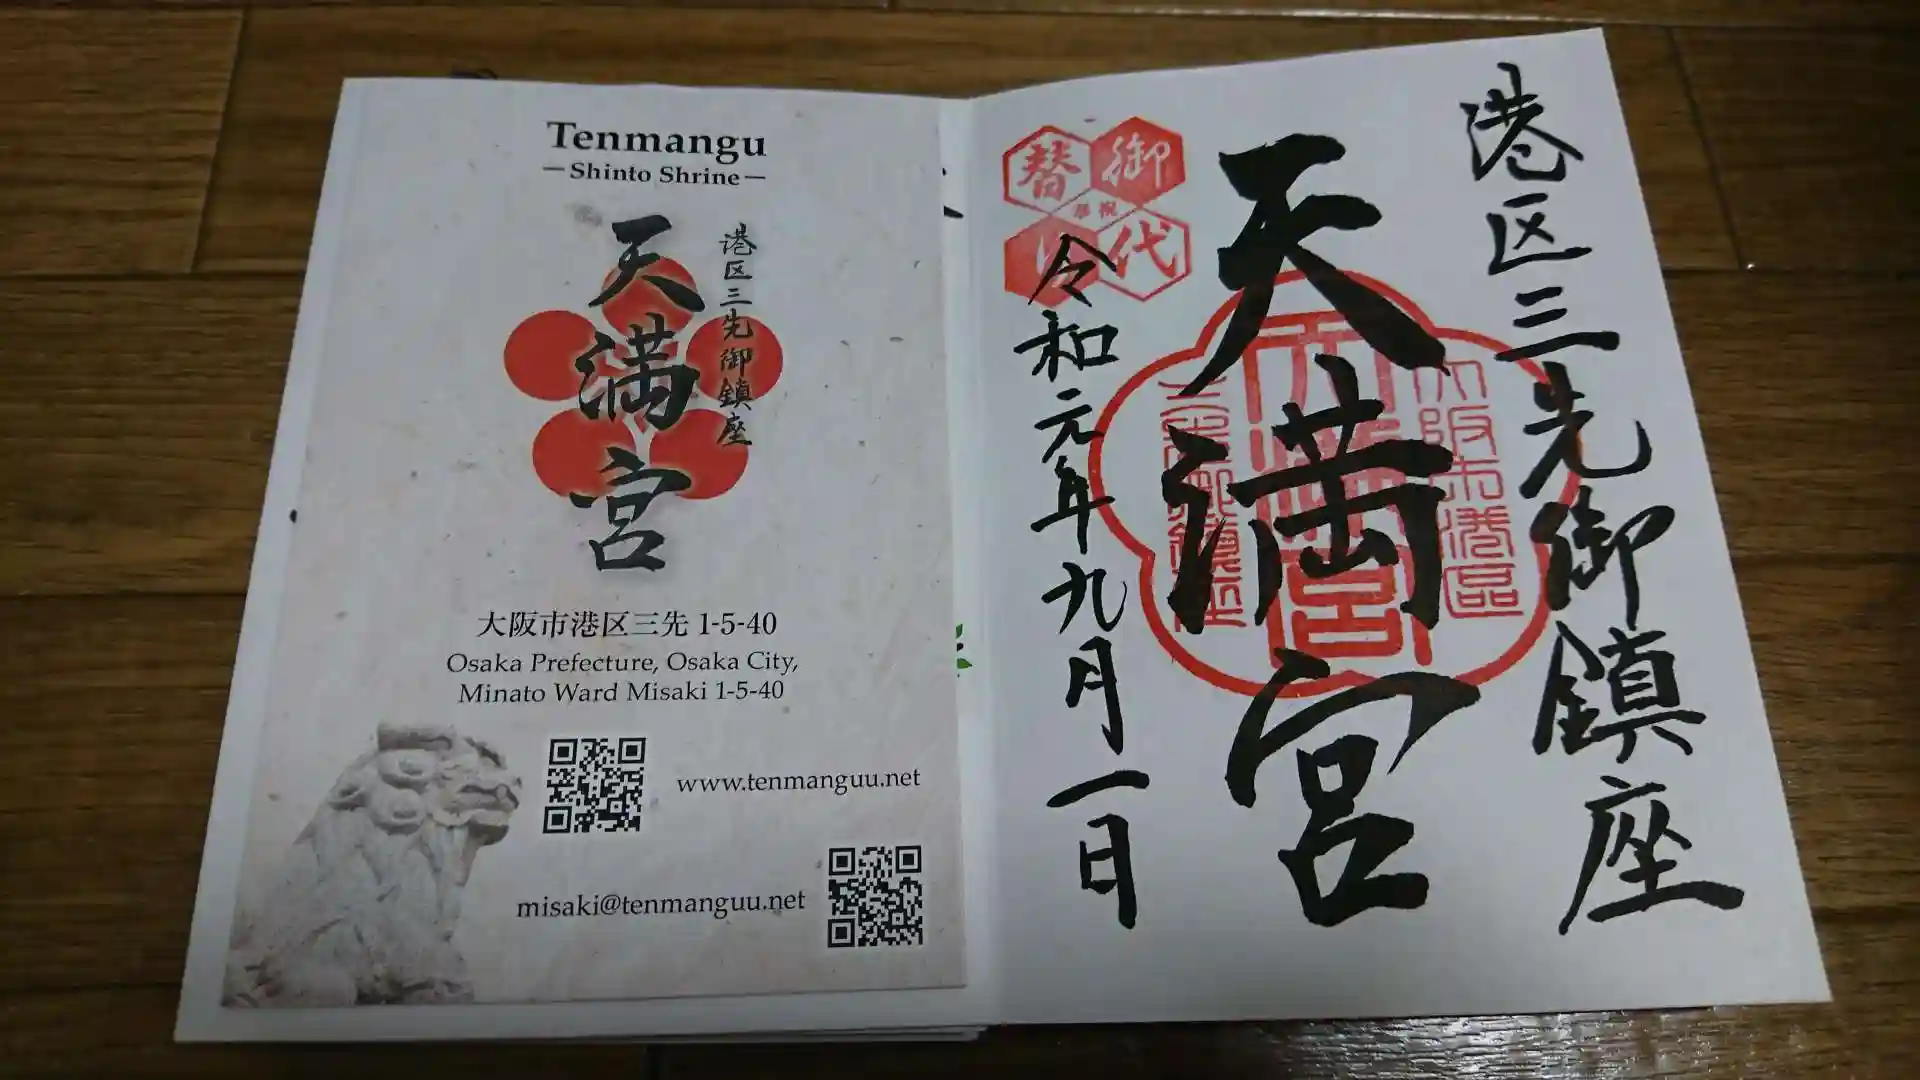 Tenmangu
—Shinto Shrine—
天満宮
港区三先御鎮座
大阪市港区三先 1-5-40
Osaka Prefecture, Osaka City,
Minato Ward Misaki 1-5-40
www.tenmanguu.net
misaki@tenmanguu.net
港区三先御鎮座
天満宮
御代替
令和元年九月一日
大阪市港區
天満宮